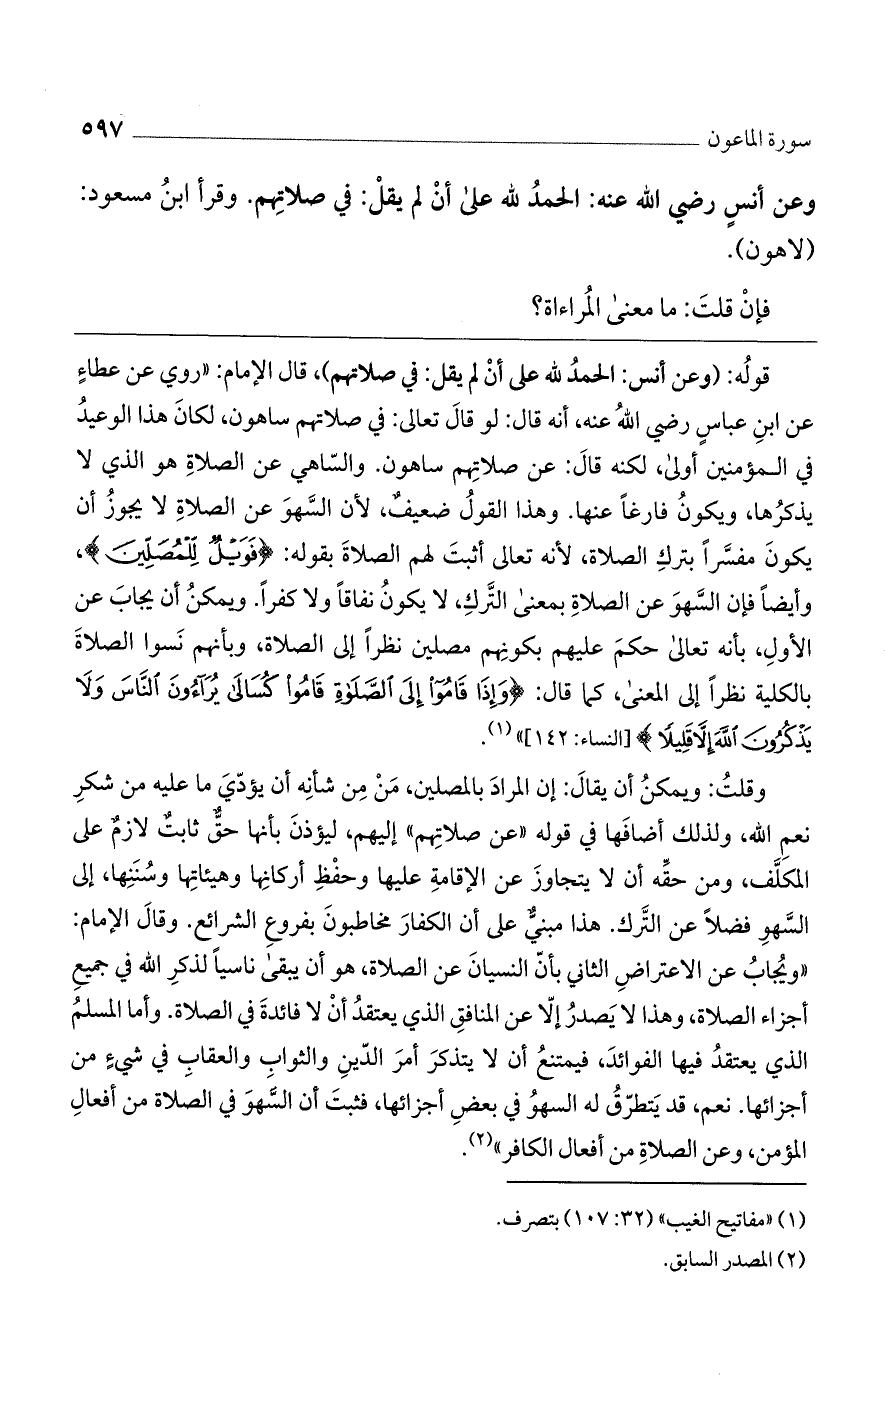 سورة الماعون ــــــــــ ٥٩٧
وعن أنسٍ رضي الله عنه: الحمدُ لله علىٰ أنْ لم يقلْ: في صلاتِهم. وقرأ ابنُ مسعود:
(لاهون).
فإنْ قلتَ: ما معنىٰ المُراءاة؟
قولُه: (وعن أنس: الحمدُ لله على أنْ لم يقل: في صلاتهم)، قال الإمام: «روي عن عطاءٍ
عن ابنِ عباسٍ رضي اللهُ عنه، أنه قال: لو قالَ تعالى: في صلاتهم ساهون، لكانَ هذا الوعيدُ
في المؤمنين أولىٰ، لكنه قالَ: عن صلاتِهم ساهون. والسّاهي عن الصلاةِ هو الذي لا
يذكرُها، ويكونُ فارغاً عنها. وهذا القولُ ضعيفٌ، لأن السَّهوَ عن الصلاةِ لا يجوزُ أن
يكونَ مفسَّراً بتركِ الصلاة، لأنه تعالى أثبتَ لهم الصلاةَ بقوله: ﴿فَوَيْلٌ لِّلْمُصَلِّينَ﴾،
وأيضاً فإن السَّهوَ عن الصلاةِ بمعنىٰ التَّركِ، لا يكونُ نفاقاً ولا كفراً. ويمكنُ أن يجابَ عن
الأولِ، بأنه تعالىٰ حكمَ عليهم بكونِهم مصلين نظراً إلى الصلاة، وبأنهم نَسوا الصلاةَ
بالكلية نظراً إلى المعنىٰ، كما قال: ﴿وَإِذَا قَامُوٓا۟ إِلَى ٱلصَّلَوٰةِ قَامُوا۟ كُسَالَىٰ يُرَآءُونَ ٱلنَّاسَ وَلَا
يَذْكُرُونَ ٱللَّهَ إِلَّا قَلِيلًا﴾ [النساء: ١٤٢]»(١).
وقلتُ: ويمكنُ أن يقالَ: إن المرادَ بالمصلين، مَنْ مِن شأنِه أن يؤدّيَ ما عليه من شكرِ
نعمِ الله، ولذلك أضافَها في قوله «عن صلاتِهم» إليهم، ليؤذنَ بأنها حقٌّ ثابتٌ لازمٌ على
المكلَّف، ومن حقِّه أن لا يتجاوزَ عن الإقامةِ عليها وحفْظِ أركانِها وهيئاتِها وسُنَنِها، إلى
السَّهوِ فضلاً عن التَّرك. هذا مبنيٌّ على أن الكفارَ مخاطبونَ بفروعِ الشرائع. وقالَ الإمام:
«ويُجابُ عن الاعتراضِ الثاني بأنّ النسيانَ عن الصلاة، هو أن يبقىٰ ناسياً لذكرِ الله في جميعِ
أجزاء الصلاة، وهذا لا يَصدرُ إلّا عن المنافقِ الذي يعتقدُ أنْ لا فائدةَ في الصلاة. وأما المسلمُ
الذي يعتقدُ فيها الفوائدَ، فيمتنعُ أن لا يتذكرَ أمرَ الدّينِ والثوابِ والعقابِ في شيءٍ من
أجزائها. نعم، قد يَتطرّقُ له السهوُ في بعضِ أجزائها، فثبتَ أن السَّهوَ في الصلاة من أفعالِ
المؤمن، وعن الصلاةِ من أفعال الكافر»(٢).
(١) «مفاتيح الغيب» (٣٢: ١٠٧) بتصرف.
(٢) المصدر السابق.